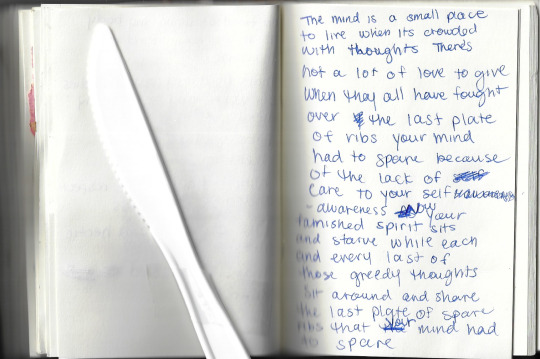 The mind is a small place
to live when its crowded
with thoughts There's
not a lot of love to give
when they all have fought
over the last plate
of ribs your mind
had to spare because
of the lack of
care to your self
-awareness now your
famished spirit sits
and starve while each
and every last of
those greedy thoughts
sit around and share
the last plate of spare
ribs that your mind had
to spare